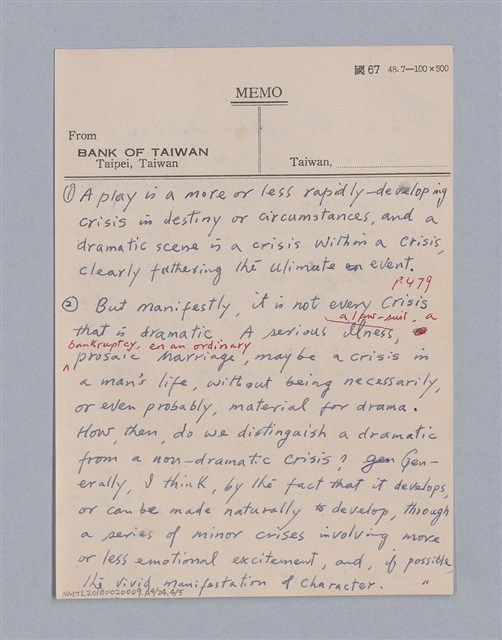 國 67 48-7-100×500
MEMO
From
BANK OF TAIWAN
Taipei, Taiwan
Taiwan,
① A play is a more or less rapidly-developing
crisis in destiny or circumstances, and a
dramatic scene is a crisis within a crisis,
clearly futhering the ulimate event.
P479
② But manifestly, it is not every crisis
a law-suit, a
that is dramatic. A serious illness,
bankruptcy, en an ordinary
prosaic marriage, may be a crisis in
a man's life, without being necessarily,
or even probably, material for drama.
How, then, do we distinguish a dramatic
from a non-dramatic crisis? gen Gen-
erally, I think, by the fact that it develops,
or can be made naturally to develop, through
a series of minor crises involving more
or less emotional excitement, and, if possible,
the vivid manifestation of character. "
NMTL20180020009